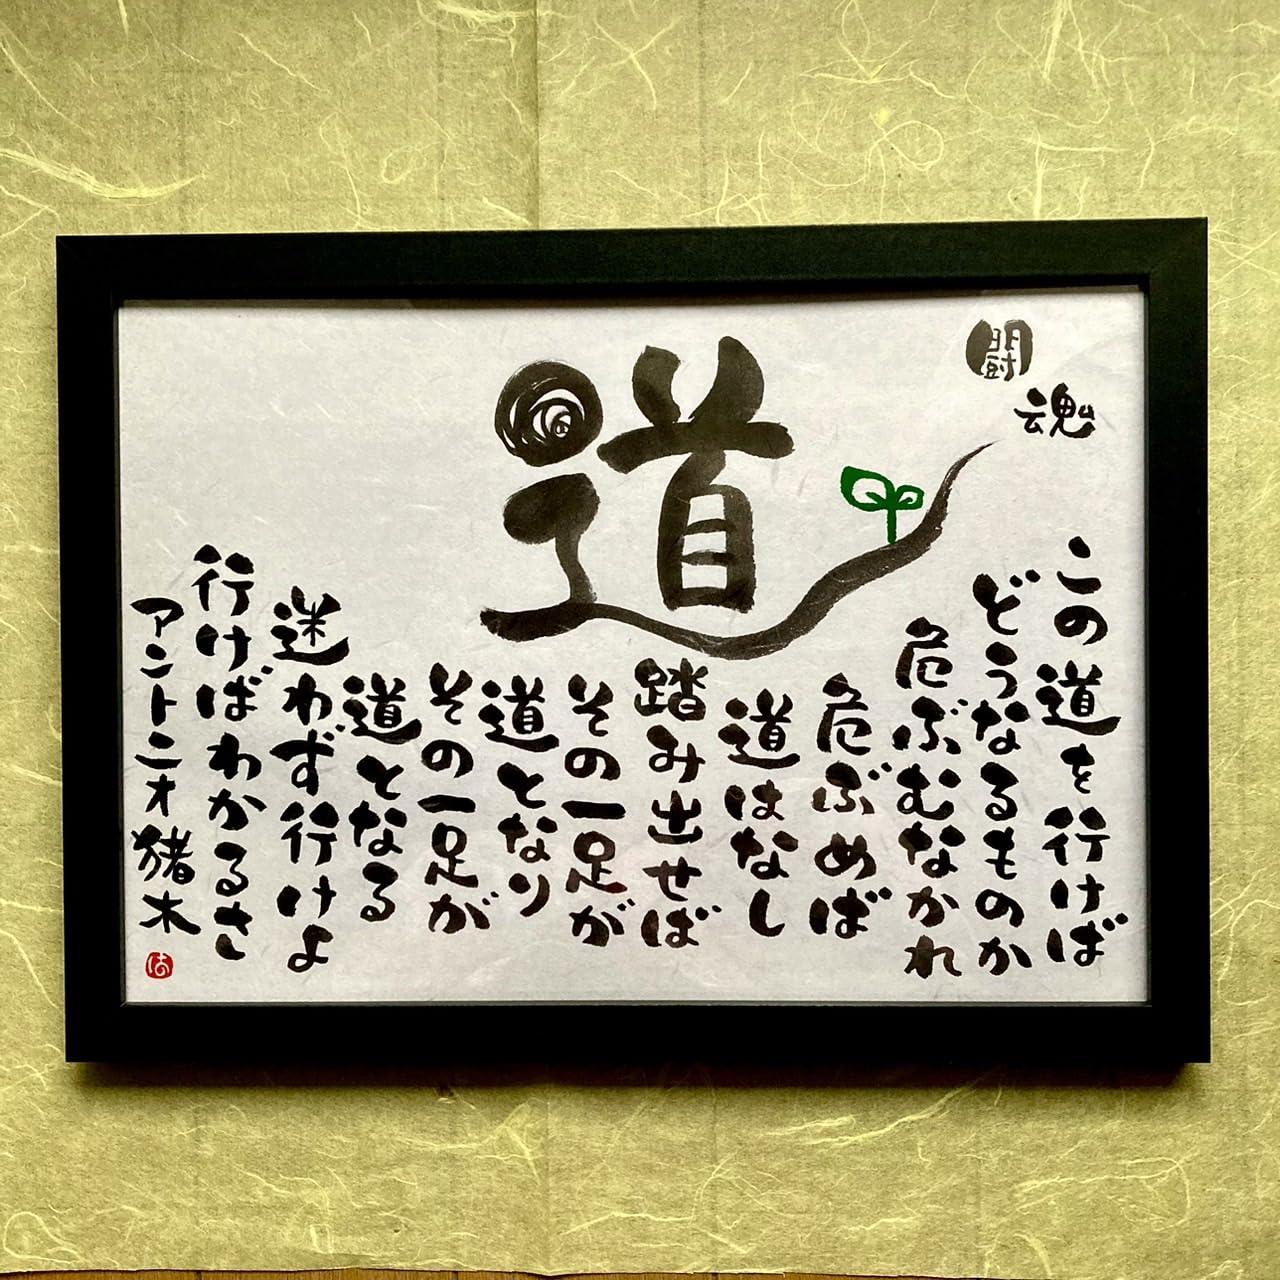 闘魂
道
この道を行けば
どうなるものか
危ぶむなかれ
危ぶめば
道はなし
踏み出せば
その一足が
道となり
その一足が
道となる
迷わず行けよ
行けばわかるさ
アントニオ猪木
は